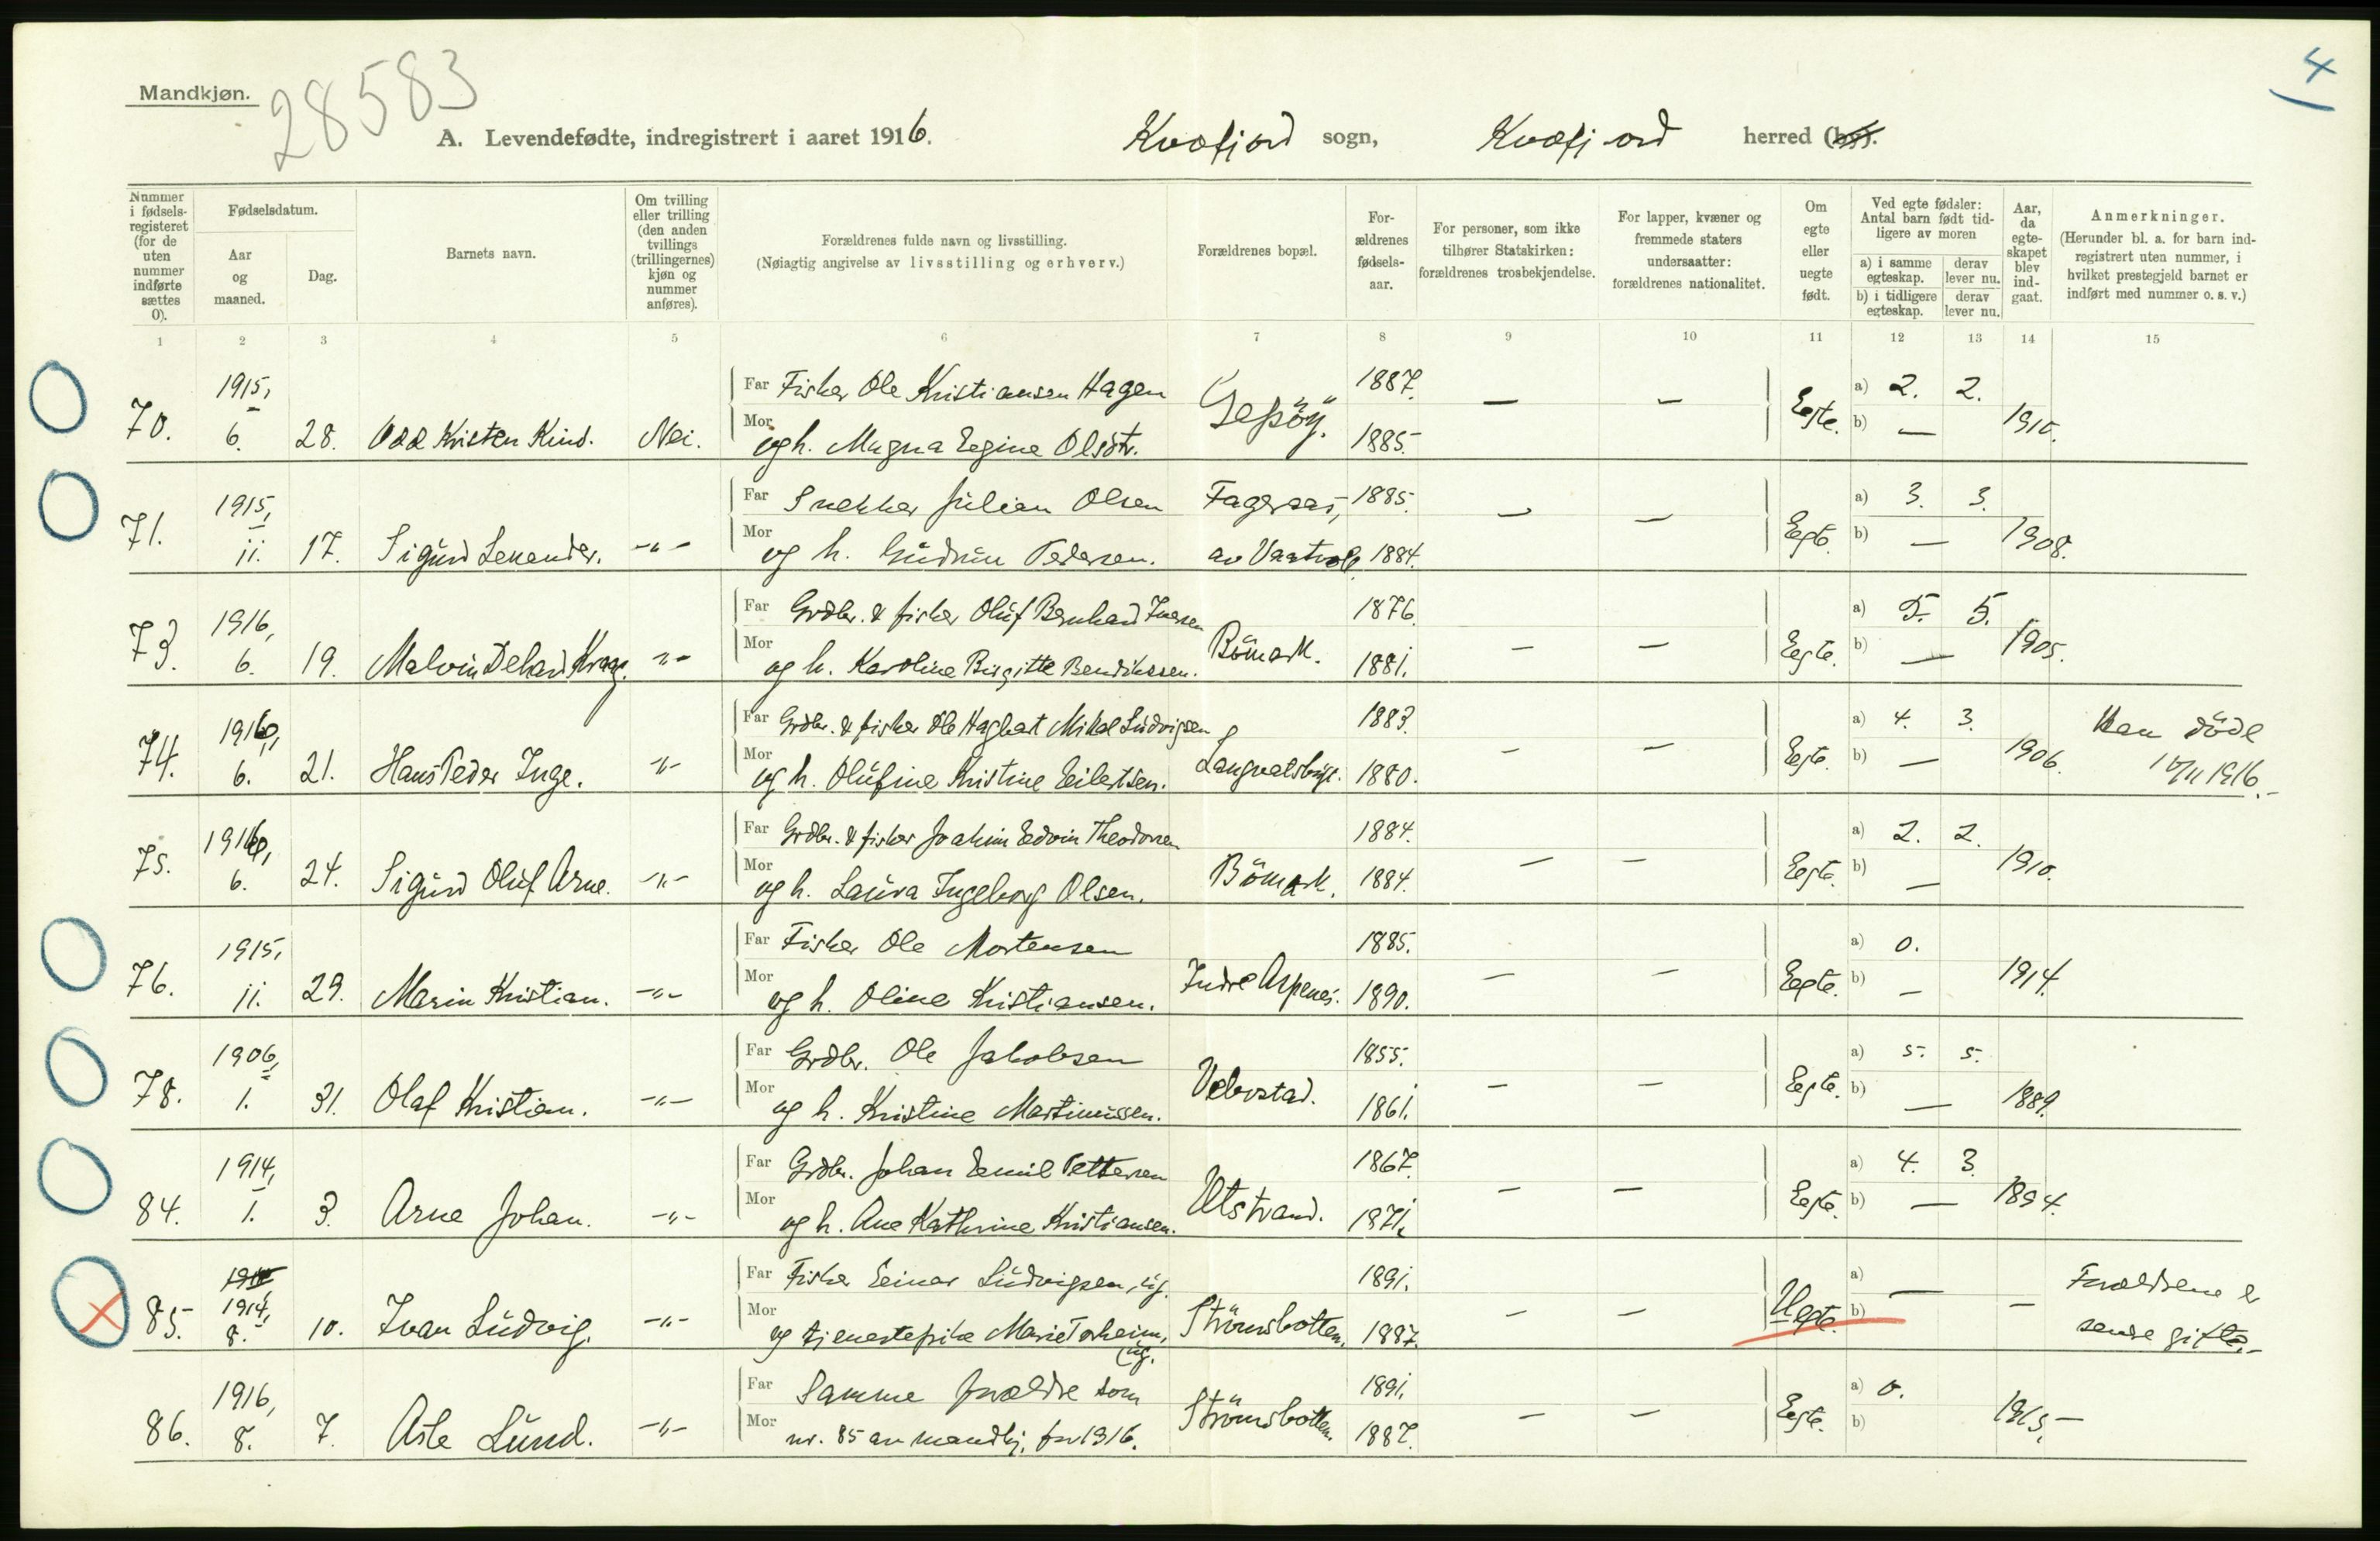 4
Mandkjøn.
28583
A. Levendefødte, indregistrert i aaret 1916. Kvæfjord sogn, Kvæfjord herred (by).
Nummer i fødsels-registeret (for de uten nummer indførte sættes 0).
Fødselsdatum.
Aar og maaned.
Dag.
Barnets navn.
Om tvilling eller trilling (den anden tvillings (trillingernes) kjøn og nummer anføres).
Forældrenes fulde navn og livsstilling.
(Nøiagtig angivelse av livsstilling og erhverv.)
Forældrenes bopæl.
For-ældrenes fødsels-aar.
For personer, som ikke tilhører Statskirken: forældrenes trosbekjendelse.
For lapper, kvæner og fremmede staters undersaatter: forældrenes nationalitet.
Om egte eller uegte født.
Ved egte fødsler: Antal barn født tid-ligere av moren
a) i samme egteskap. derav lever nu.
b) i tidligere egteskap. derav lever nu.
Aar, da egte-skapet blev ind-gaat.
Anmerkninger.
(Herunder bl. a. for barn ind-registrert uten nummer, i hvilket prestegjeld barnet er indført med nummer o. s. v.)
1 2 3 4 5 6 7 8 9 10 11 12 13 14 15
1915, Far Fisker Ole Kristiansen Hagen 1887. — — a) 2. 2.
70. 6. 28. Odd Kristen Kind. Nei. Mor og h. Magna Regine Olsdtr. Gepöy. 1885. Egte. b) — 1910.
1915, Far Snekker Julian Olsen Fageraas, 1885. — — a) 3. 3.
71. 11. 17. Sigurd Lenander. -"- Mor og h. Gudrun Pedersen. av 1884. Egte. b) — 1908.
1916, Far Grdbr. & fisker Oluf Bernhard Iversen 1876. a) 5. 5.
73. 6. 19. Malvin Delian Krag. -"- Mor og h. Karoline Birgitte Bendikssen. Bömark. 1881. — — Egte. b) — 1905.
1916, Far Grdbr. & fisker Ole Hagbart Mikal Ludvigsen 1883. a) 4. 3. Han döde
74. 6. 21. Hans Peder Inge. -"- Mor og h. Olufine Kristine Eilertsen. Langvatsbugt. 1880. — — Egte. b) — 1906. 1916.-
1916, Far Grdbr. & fisker Joakim Edvin Theodorsen 1884. a) 2. 2.
75. 6. 24. Sigurd Oluf Arne. -"- Mor og h. Laura Ingeborg Olsen. Bömark. 1884. — — Egte. b) — 1910.
1915, Far Fisker Ole Mortensen 1885. a) 0.
76. 11. 29. Marin Kristian. -"- Mor og h. Oline Kristiansen. Indre Aspenes. 1890. — — Egte. b) — 1914.
1906, Far Grdbr. Ole Jakobsen 1855. a) 5. 5.
78. 1. 31. Olaf Kristian. -"- Mor og h. Kristine Martinussen. Vebostad. 1861. — — Egte. b) — 1889.
1914, Far Grdbr. Johan Emil Pettersen 1867. a) 4. 3.
84. 1. 3. Arne Johan. -"- Mor og h. Ane Kathrine Kristiansen. Utstrand. 1871. — — Egte. b) — 1894.
1914, Far Fisker Einar Ludvigsen, ug. 1891. a) — Forældrene er
85. 8. 10. Ivan Ludvig. -"- Mor og tjenestepike Marie Torheim, ug. Strömsbotten. 1887. — — Uegte. b) — senere gifte.-
1916, Far Samme forældre som 1891. a) 0.
86. 8. 7. Asle Lund. -"- Mor nr. 85 av mandkj. for 1916. Strömsbotten. 1887. — — Egte. b) 1915. —